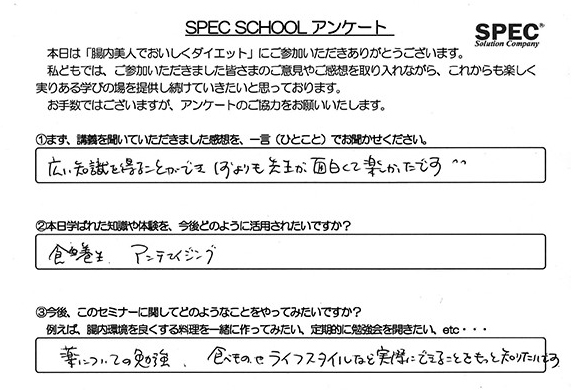 SPEC SCHOOL アンケート
SPEC®
Solution Company
本日は「腸内美人でおいしくダイエット」にご参加いただきありがとうございます。
私どもでは、ご参加いただきました皆さまのご意見やご感想を取り入れながら、これからも楽しく
実りある学びの場を提供し続けていきたいと思っております。
お手数ではございますが、アンケートのご協力をお願いいたします。
①まず、講義を聞いていただきました感想を、一言（ひとこと）でお聞かせください。
広い知識を得ることができ 何よりも先生が面白くて楽しかったです ^^
②本日学ばれた知識や体験を、今後どのように活用されたいですか？
食養生、アンチエイジング
③今後、このセミナーに関してどのようなことをやってみたいですか？
例えば、腸内環境を良くする料理を一緒に作ってみたい、定期的に勉強会を開きたい、etc・・・
薬についての勉強、食べものやライフスタイルなど実際にできることをもっと知りたいです